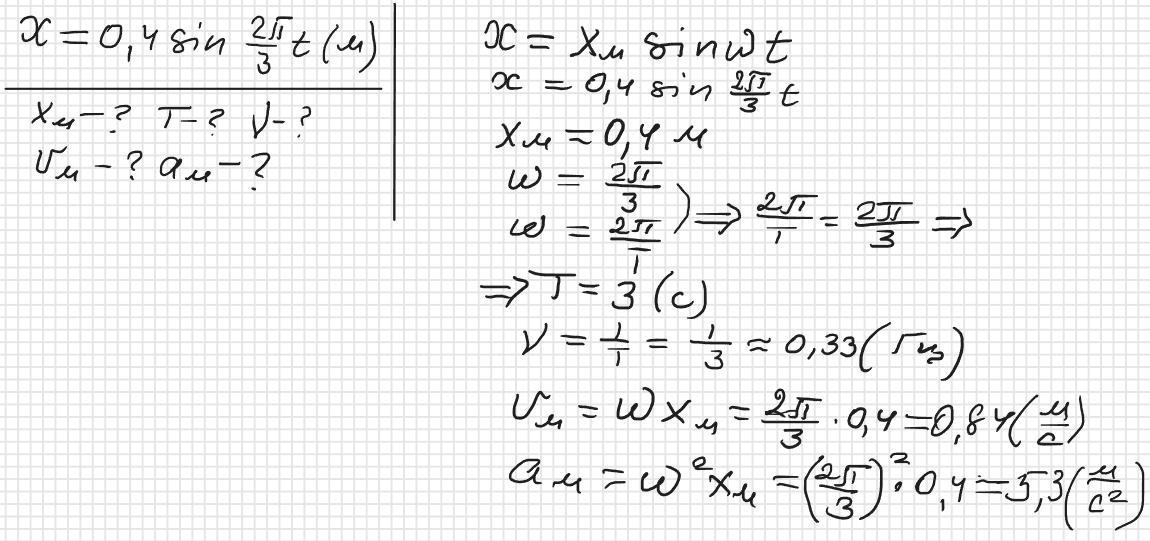 x = 0,4 sin 2π/3 t (м)
xм - ? T - ? ν - ?
υм - ? aм - ?
x = xм sin ωt
x = 0,4 sin 2π/3 t
xм = 0,4 м
ω = 2π/3
ω = 2π/T ) ⇒ 2π/T = 2π/3 ⇒
⇒ T = 3 (с)
ν = 1/T = 1/3 ≈ 0,33 (Гц)
υм = ω xм = 2π/3 · 0,4 = 0,84 (м/с)
aм = ω² xм = (2π/3)² · 0,4 = 5,3 (м/с²)